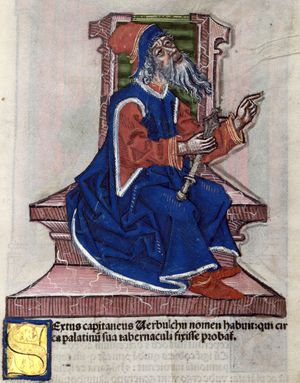 SExtus capitaneus Uerbulchu nomen habuit: qui cir
ca palatinũ sua tabernacula fixisse probat̃.